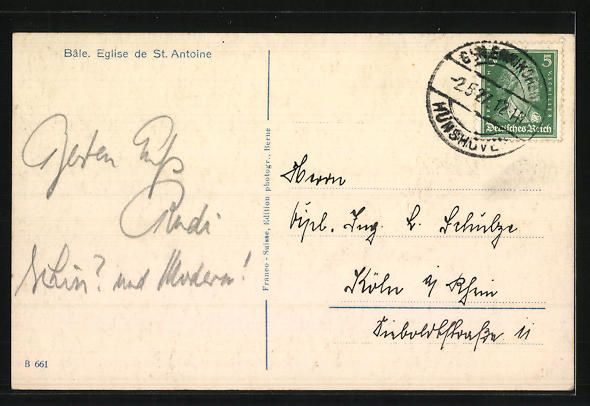 Bâle. Eglise de St. Antoine
Besten Gruß
Rudi
Schön? und Modern!
B 661
Franco-Suisse, Edition photogr., Berne
5
Deutsches Reich
-2.5.27. 12
Herrn
Dipl. Ing. L. Schulze
Köln a/ Rhein
Sieboldtstraße 11